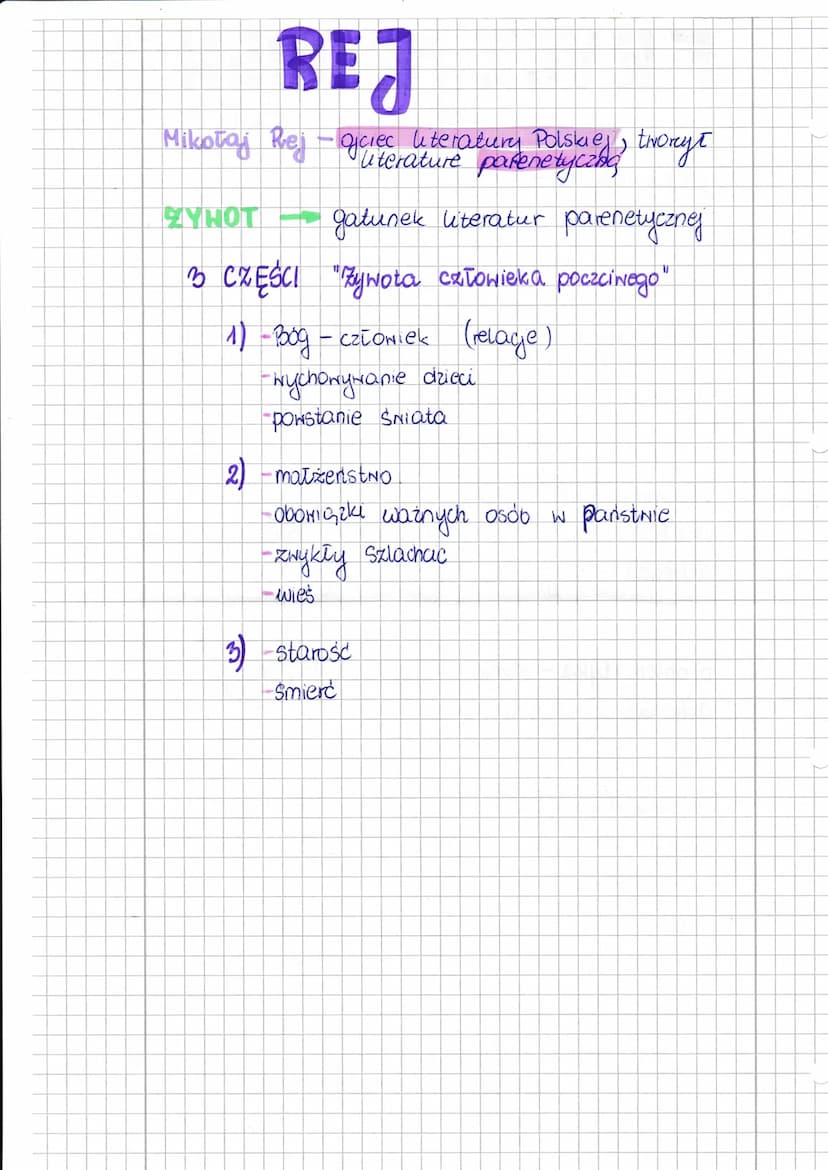 REJ
Mikołaj Rej - ojciec literatury Polskiej, tworzył
literature parenetyczną
ŻYWOT → gatunek literatur parenetycznej
3 CZĘŚCI "Żywota człowieka poczciwego"
1) - Bóg - człowiek (relacje)
- wychowywanie dzieci
- powstanie świata
2) - małżeństwo
- obowiązki ważnych osób w państwie
- zwykły szlachcic
- wieś
3) - starość
- śmierć